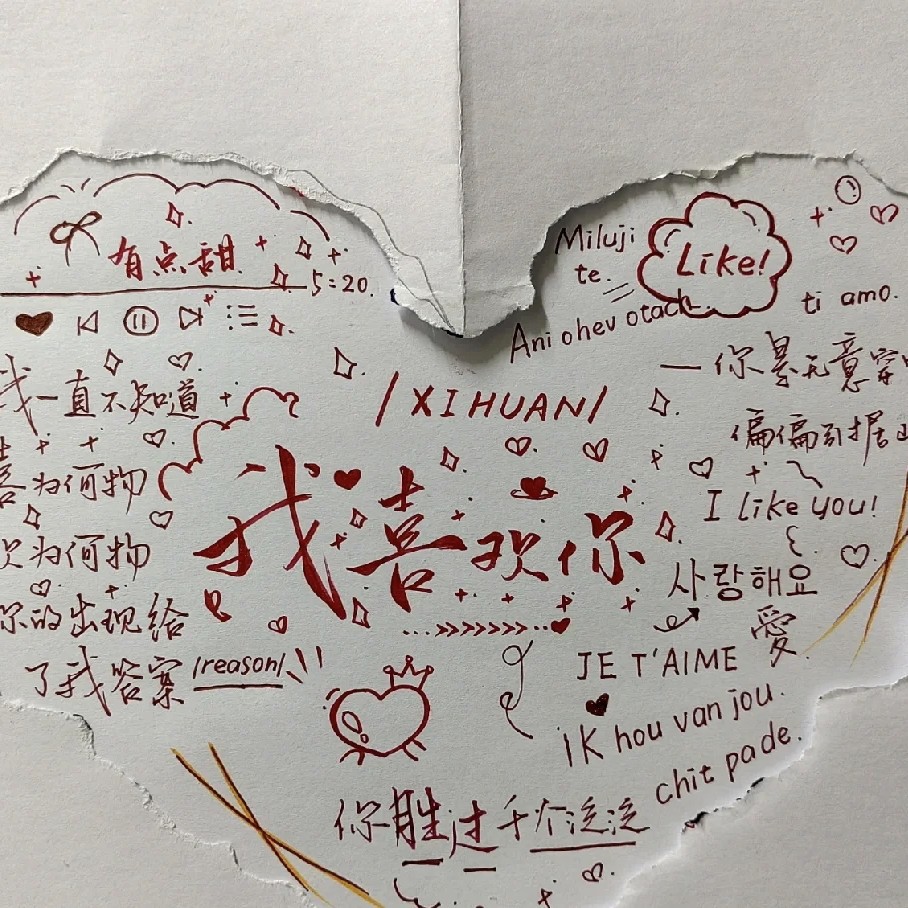 有点甜
5:20.
我一直不知道
喜为何物
欢为何物
你的出现给
了我答案 /reason/
/XIHUAN/
我喜欢你
Miluji
te.
Like!
Ani ohev otach
ti amo.
一你是无意穿
偏偏引
I like you!
사랑해요
愛
JE T'AIME
iK hou van jou.
chit pa de.
你胜过千个泛泛